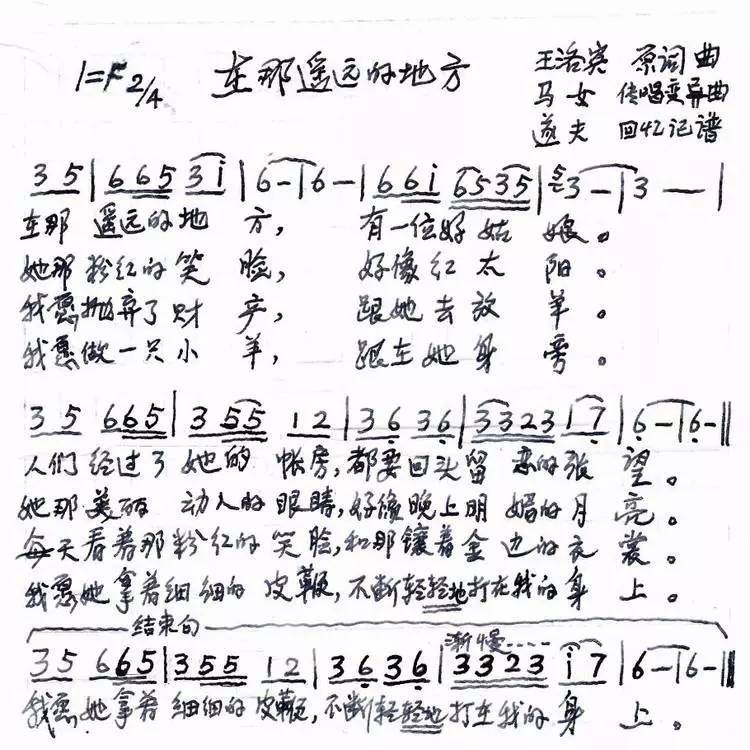 1=F 2/4 在那遥远的地方 王洛宾 原词曲
马女 传唱变异曲
道夫 回忆记谱
3 5 | 6 6 5 3 i | 6 - | 6 - | 6 6 i 6 5 3 5 | 5 3 - | 3 - |
在那 遥远的地 方， 有一位好 姑 娘。
她那粉红的笑 脸， 好像红 太 阳。
我愿抛弃了财 产， 跟她去放 羊。
我愿做一只小 羊， 跟在她身 旁。
3 5 6 6 5 | 3 5 5 1 2 | 3 6 3 6 | 3 3 2 3 1 7 | 6 - | 6 - ||
人们 经过了 她的 帐房，都要回头留 恋的张 望。
她那美丽 动人的眼睛，好像晚上明 媚的月 亮。
每天看着那粉红的笑脸，和那镶着金 边的衣 裳。
我愿她拿着细细的皮鞭，不断轻轻地打在我的身 上。
结束句 渐慢
3 5 6 6 5 | 3 5 5 1 2 | 3 6 3 6 | 3 3 2 3 i 7 | 6 - | 6 - ||
我愿她拿着 细细的皮鞭，不断轻轻地打在我的身 上。